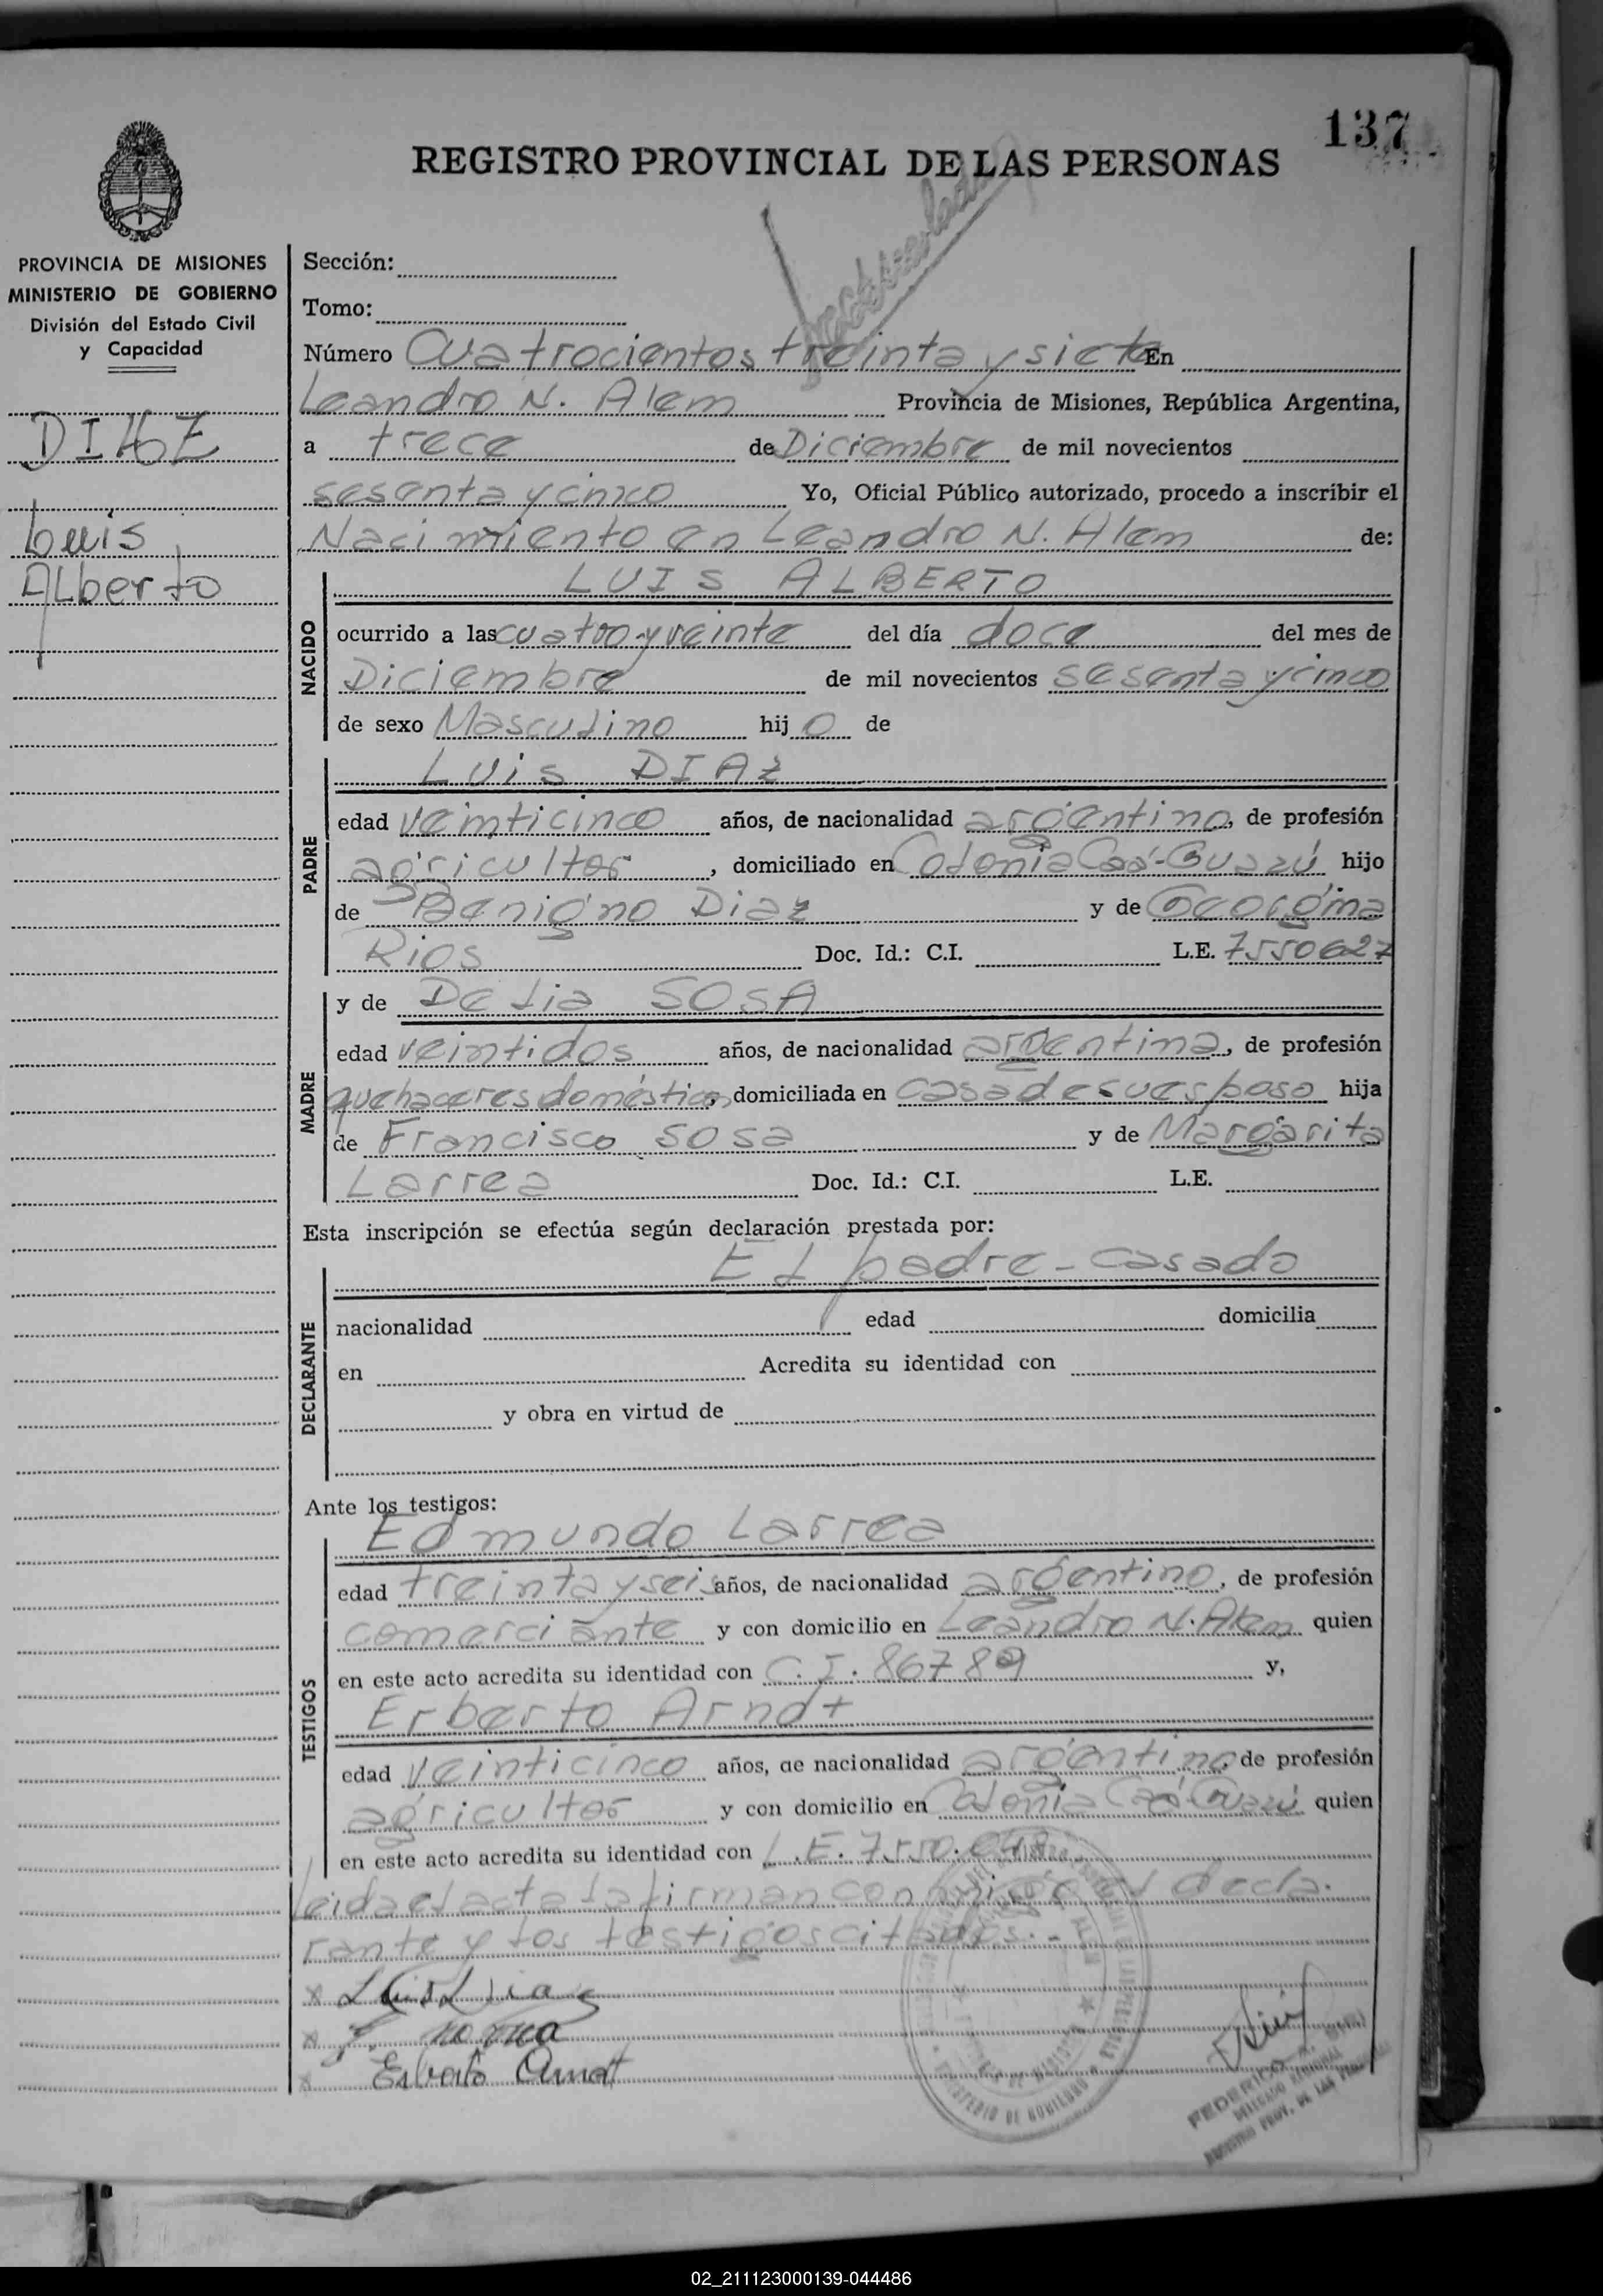 137
REGISTRO PROVINCIAL DE LAS PERSONAS
PROVINCIA DE MISIONES
MINISTERIO DE GOBIERNO
División del Estado Civil
y Capacidad
DIAZ
Luis
Alberto
Sección:
Tomo:
Número Cuatrocientos treinta y siete En
Leandro N. Alem Provincia de Misiones, República Argentina,
a trece de Diciembre de mil novecientos
sesenta y cinco Yo, Oficial Público autorizado, procedo a inscribir el
Nacimiento en Leandro N. Alem de:
NACIDO
LUIS ALBERTO
ocurrido a las cuatro y veinte del día doce del mes de
Diciembre de mil novecientos sesenta y cinco
de sexo Masculino hijo de
PADRE
Luis DIAZ
edad veinticinco años, de nacionalidad argentino, de profesión
agricultor, domiciliado en Colonia Caá-Guazú hijo
de Benigno Diaz y de Georgina
Rios Doc. Id.: C.I. L.E. 7550627
MADRE
y de Delia SOSA
edad veintidos años, de nacionalidad argentina, de profesión
quehaceres domésticos, domiciliada en casa de su esposo hija
de Francisco Sosa y de Margarita
Larrea Doc. Id.: C.I. L.E.
Esta inscripción se efectúa según declaración prestada por:
DECLARANTE
El padre - casado
nacionalidad edad domicilia
en Acredita su identidad con
y obra en virtud de
Ante los testigos:
TESTIGOS
Edmundo Larrea
edad treinta y seis años, de nacionalidad argentino, de profesión
comerciante y con domicilio en Leandro N. Alem quien
en este acto acredita su identidad con C.I. 86789 y,
Erberto Arndt
edad veinticinco años, de nacionalidad argentino, de profesión
agricultor y con domicilio en Colonia Caá Guazú quien
en este acto acredita su identidad con L.E. 7.550.
Leida el acta la firman conmigo el decla-
rante y los testigos citados.-
x Luis Diaz
x
x Erberto Arndt
MINISTERIO DE GOBIERNO
FEDERICO
DELEGADO REGIONAL
REGISTRO PROV. DE LAS PERSONAS
02_211123000139-044486